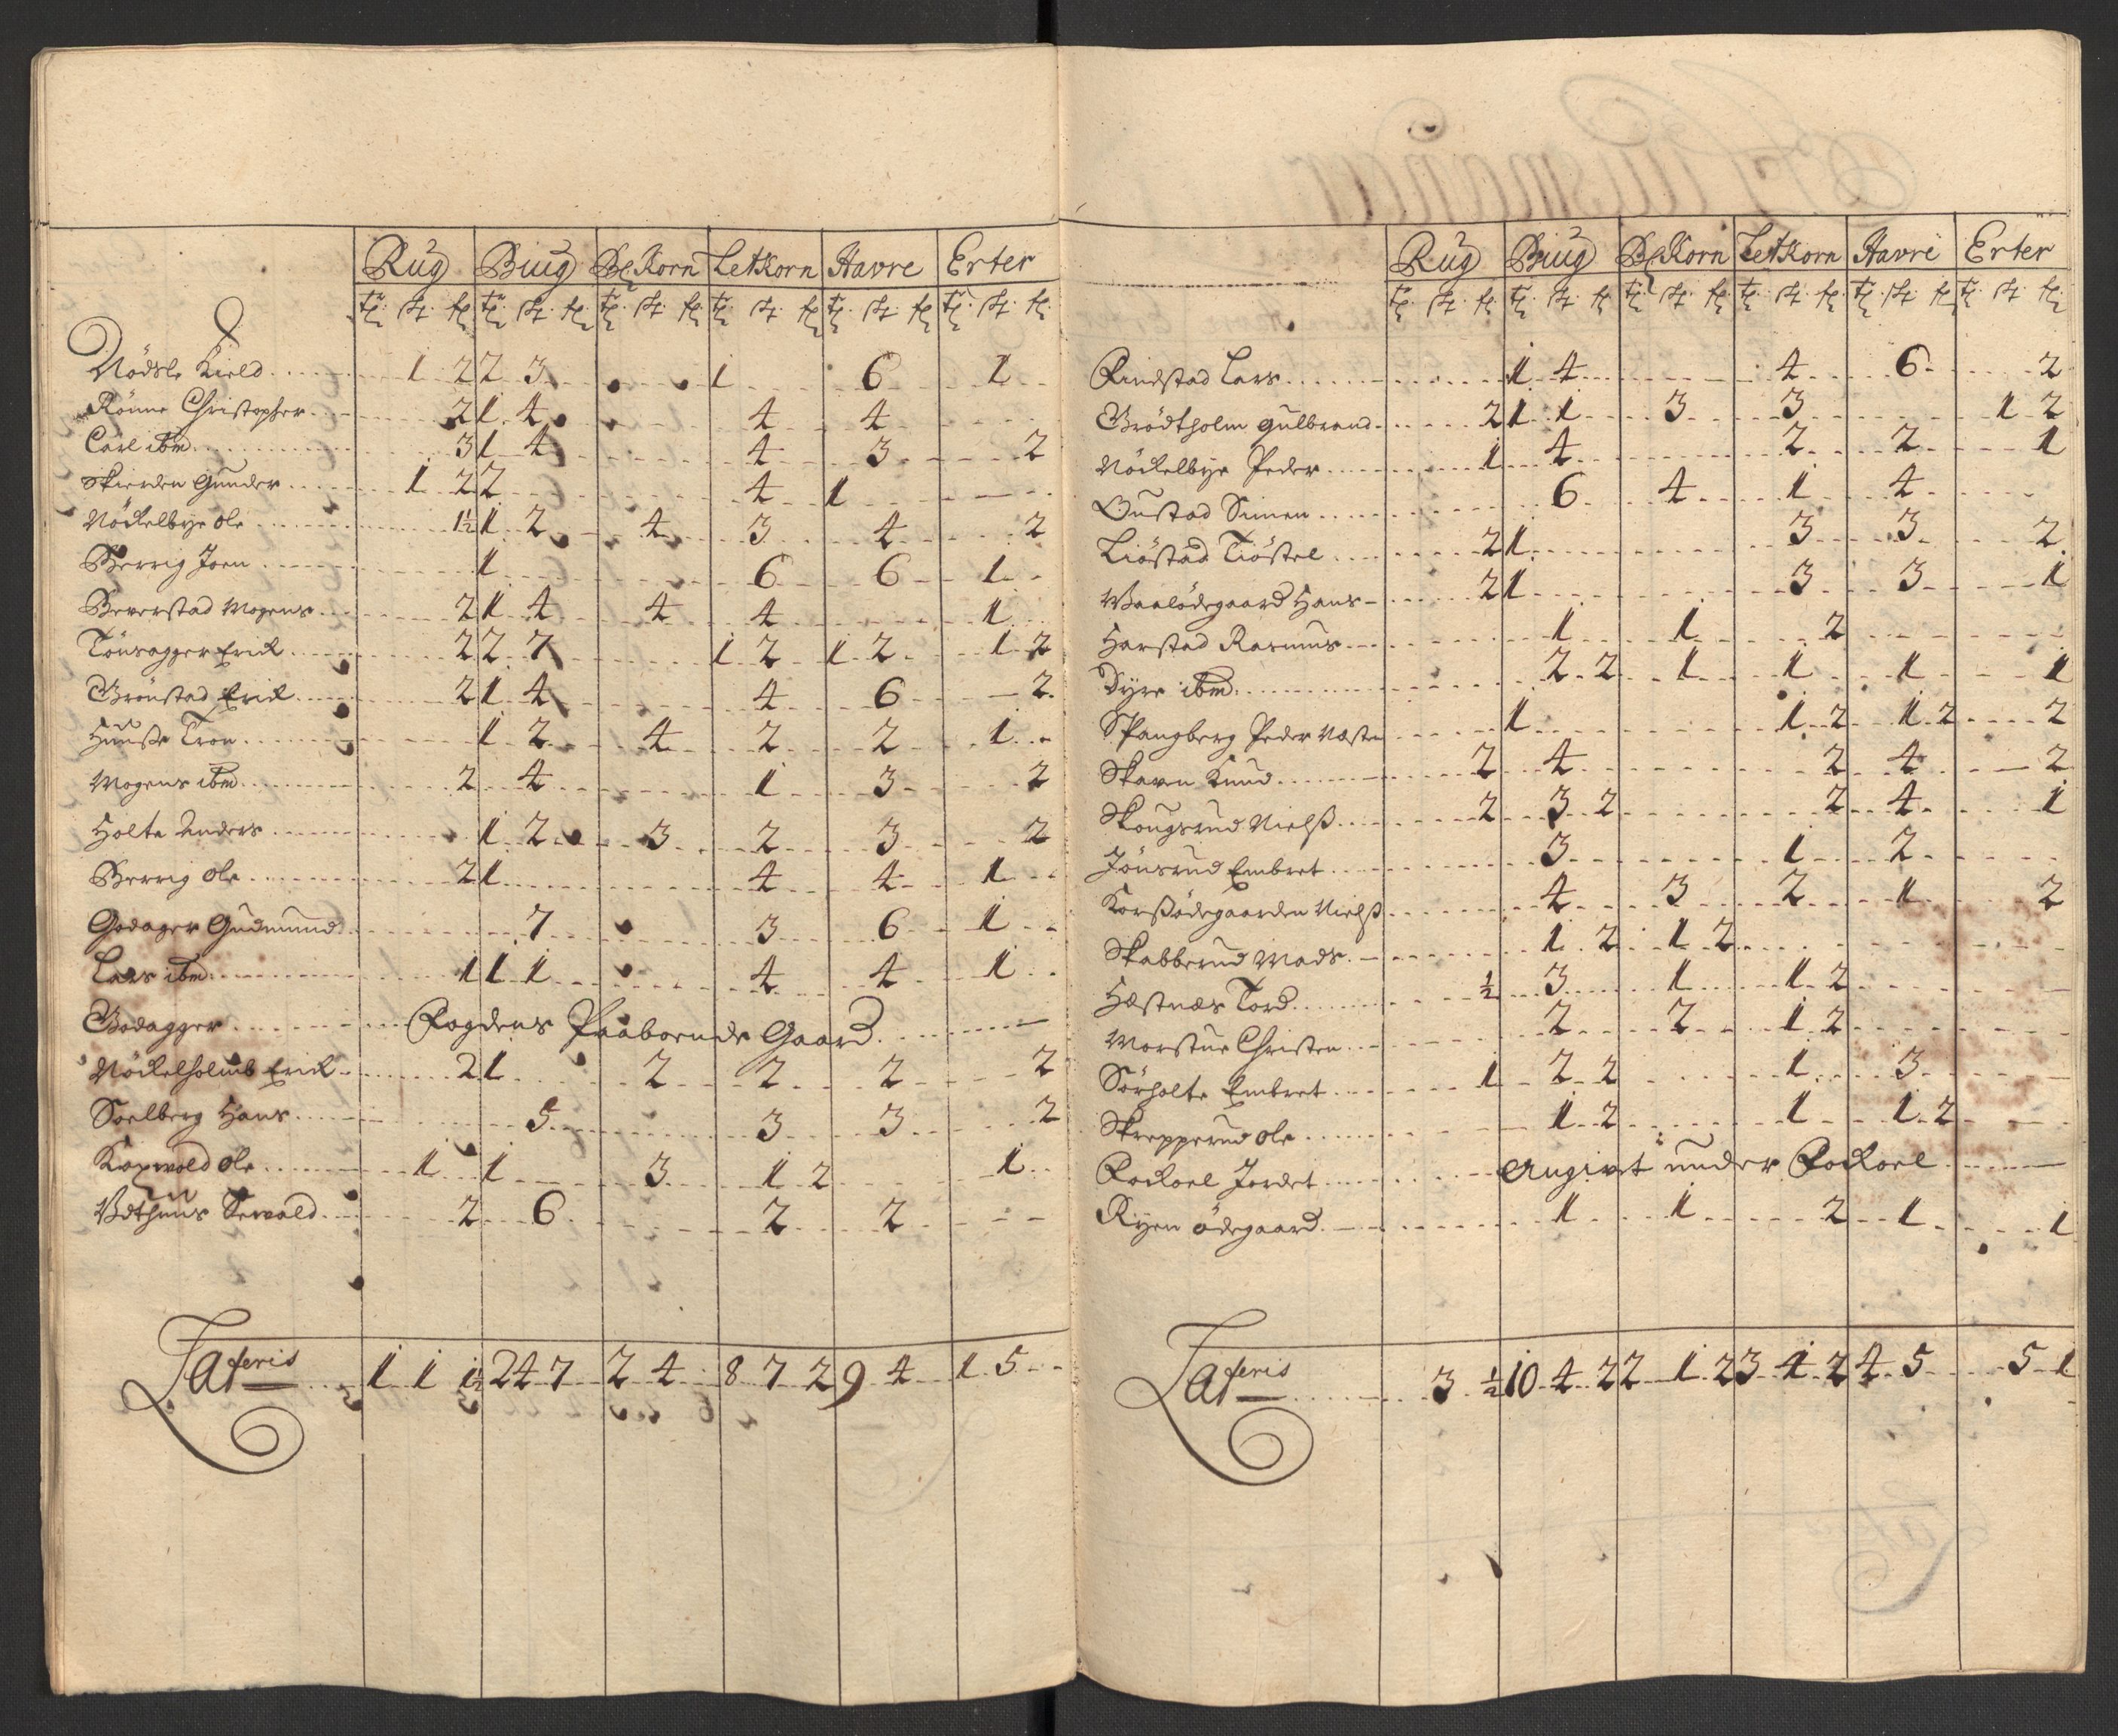 Rug Biug Bl Korn Letkorn Havre Erter
Nödsle Kield 1 2 2 3 1 6 1
Rönne Christopher 2 1 4 4 4
Carl ibm 3 1 4 4 3 2
Skierden Gunder 1 2 2 4 1
Nöckelbye ole 1½ 1 2 4 3 4 2
Berrig Joen 1 6 6 1
Beverstad Mogens 2 1 4 4 4 1
Tönsagger Erick 2 2 7 1 2 1 2 1 2
Grönstad Erick 2 1 4 4 6 2
Hunsße Tron 1 2 4 2 2 1
Mogens ibm 2 4 1 3 2
Holte Anders 1 2 3 2 3 2
Berrig ole 2 1 4 4 1
Godager Gudmund 7 3 6 1
Lars ibm 1 1 1 4 4 1
Godagger Fogdens Paaboende Gaard
Nöckelholmb Erick 2 1 2 2 2 2
Soelberg Hans 5 3 3 2
Kaxwold ole 1 1 3 1 2 1
Vdthuus Sewald 2 6 2 2
Lateris 1 1 1½ 24 7 2 4 8 7 2 9 4 1 5
Rug Biug Bl Korn Letkorn Havre Erter
Rindstad Lars 1 4 4 6 2
Brödtholm gulbrand 2 1 1 3 3 1 2
Nöckelbye Peder 1 4 2 2 1
Oustad Simen 6 4 1 4
Liöstad Tiöstel 2 1 3 3 2
Waalödegaard Hans 2 1 3 3 1
Harstad Rasmus 1 1 2
Dyre ibm 2 2 1 1 1 1
Spangberg Peder Næsten 1 1 2 1 2 2
Skaven Knud 2 4 2 4 2
Skougsrud Nielß 2 3 2 2 4 1
Jönsrud Embret 3 1 2
Korßödegaarden Nielß 4 3 2 1 2
Skabberud Mads 1 2 1 2
Hæstnæs Tord ½ 3 1 1 2
Morstue Christen 2 2 1 2
Sörholte Embret 1 2 2 1 3
Skrepperud ole 1 2 1 1 2
Rockoel Jordet Angivet under Rockoel
Ryen ödegaard 1 1 2 1 1
Lateris 3 ½ 10 4 2 2 1 2 3 4 2 4 5 5 1